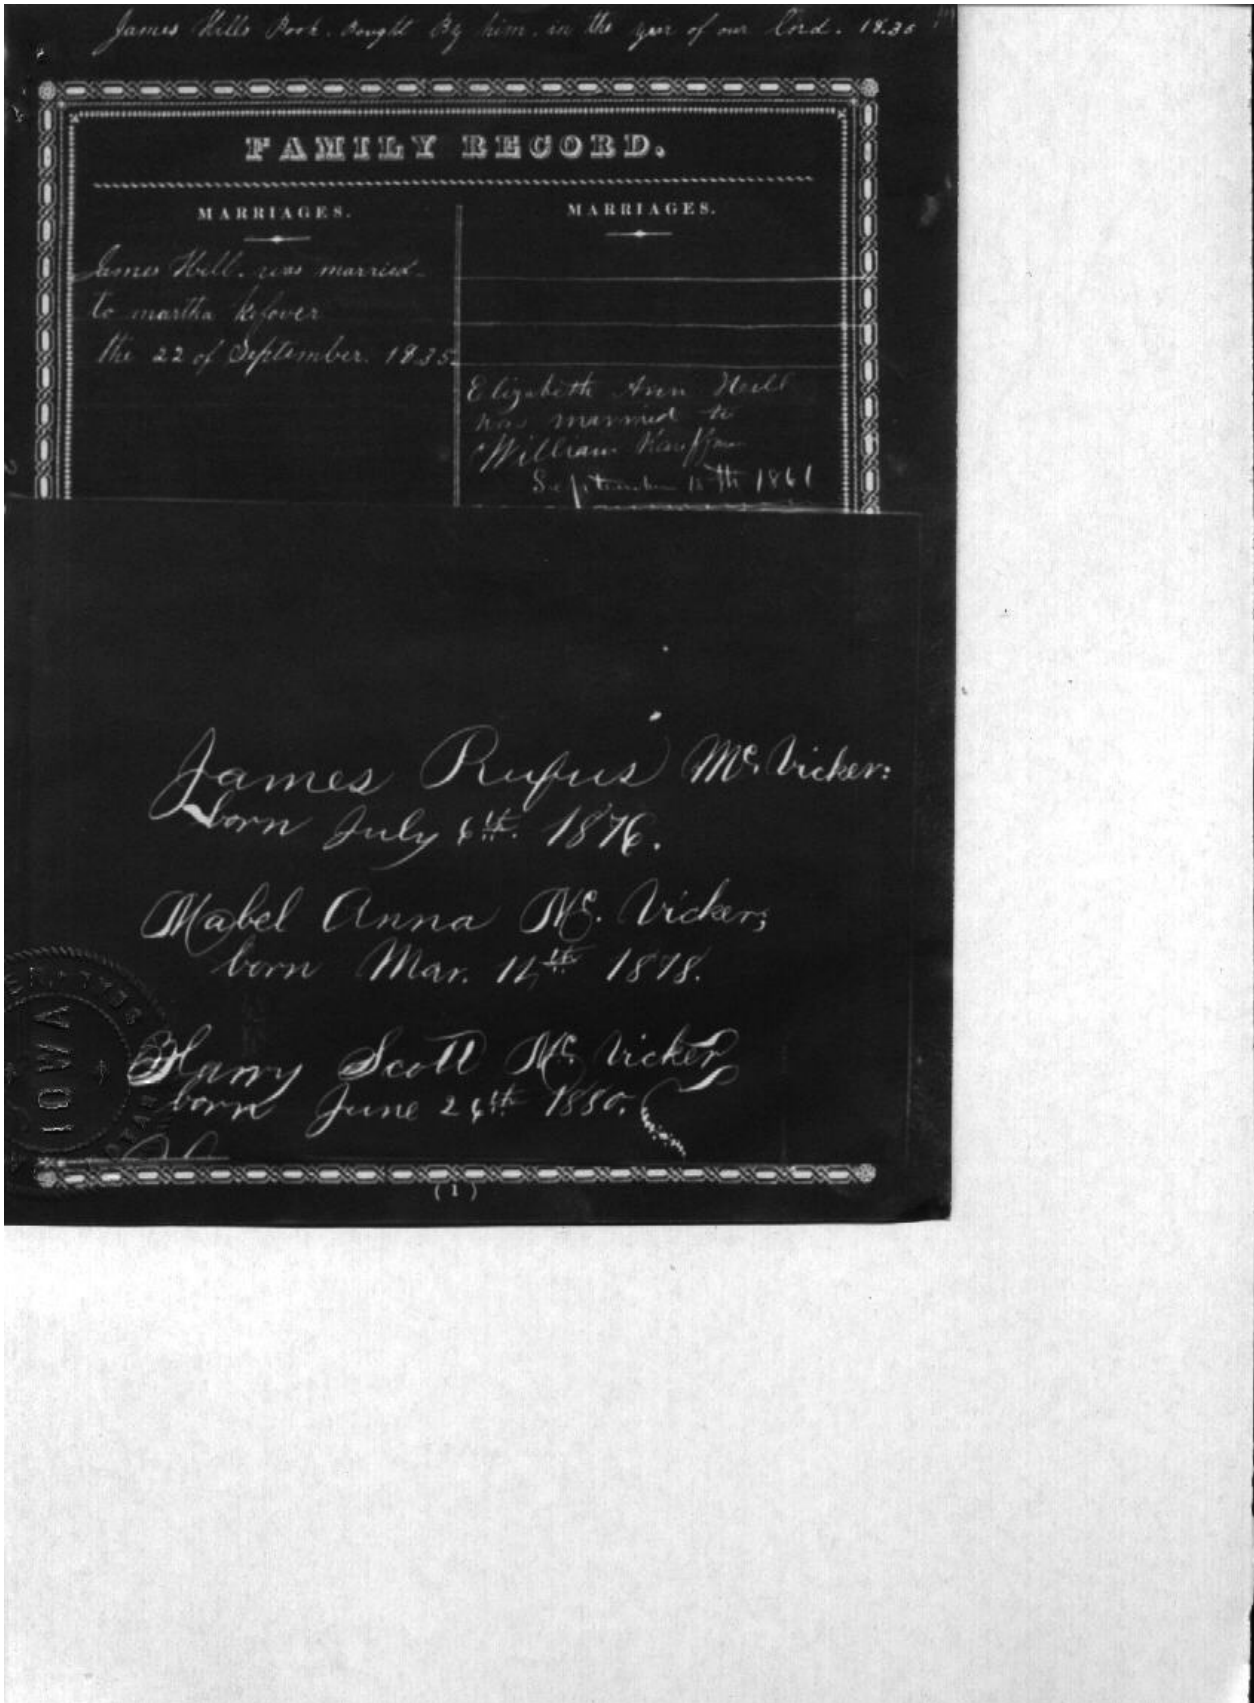 James Hills Book. Bought By him. in the year of our Lord. 1835
FAMILY RECORD.
MARRIAGES.
James Hill. was married
to martha Kefover
the 22 of September. 1835.
MARRIAGES.
Elizabeth Ann Hill
was married to
William
September 15th 1861
James Rufus Mc. Vicker:
born July 6th. 1876.
Mabel Anna Mc. Vicker;
born Mar. 14th 1878.
Harry Scott Mc. Vicker,
born June 26th 1880.
IOWA
(1)